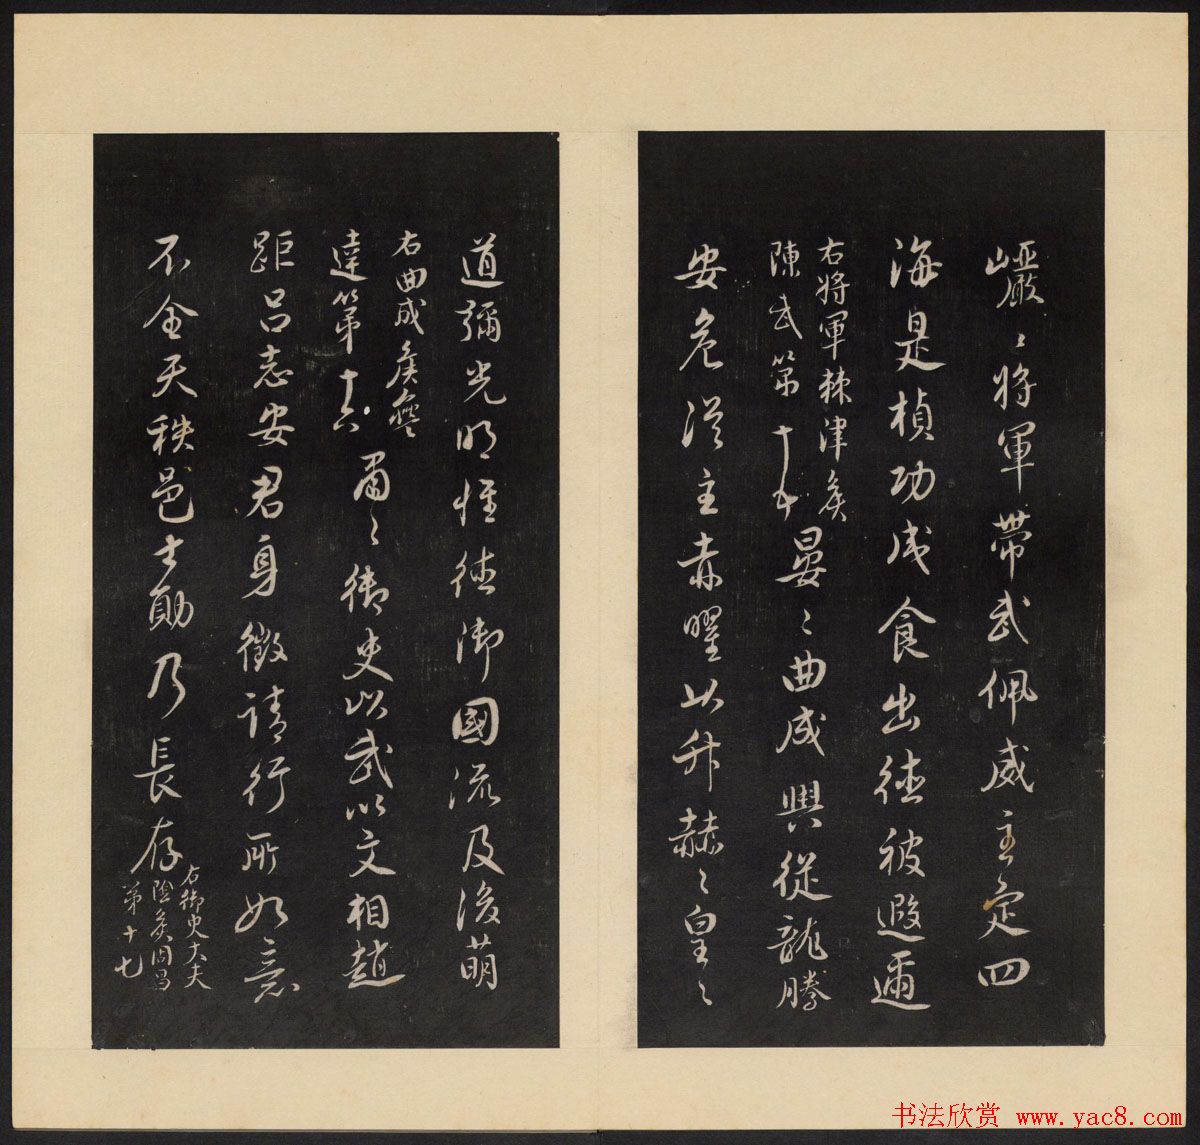 巗〻將軍帶武佩威主定四
海是楨功成食出德被遐邇
右將軍棘津矦
陳武第十五
晏〻曲成輿從龍騰
安危從主赤曜以升赫〻皇〻
道彌光明惟德御國流及後萌
右曲成矦蠱
達第十六
肅〻御史以武以文相趙
距呂志安君身徵詣行所如意
不全天秩邑土勛乃長存
右御史大夫
陰矦周昌
第十七
书法欣赏 www.yac8.com